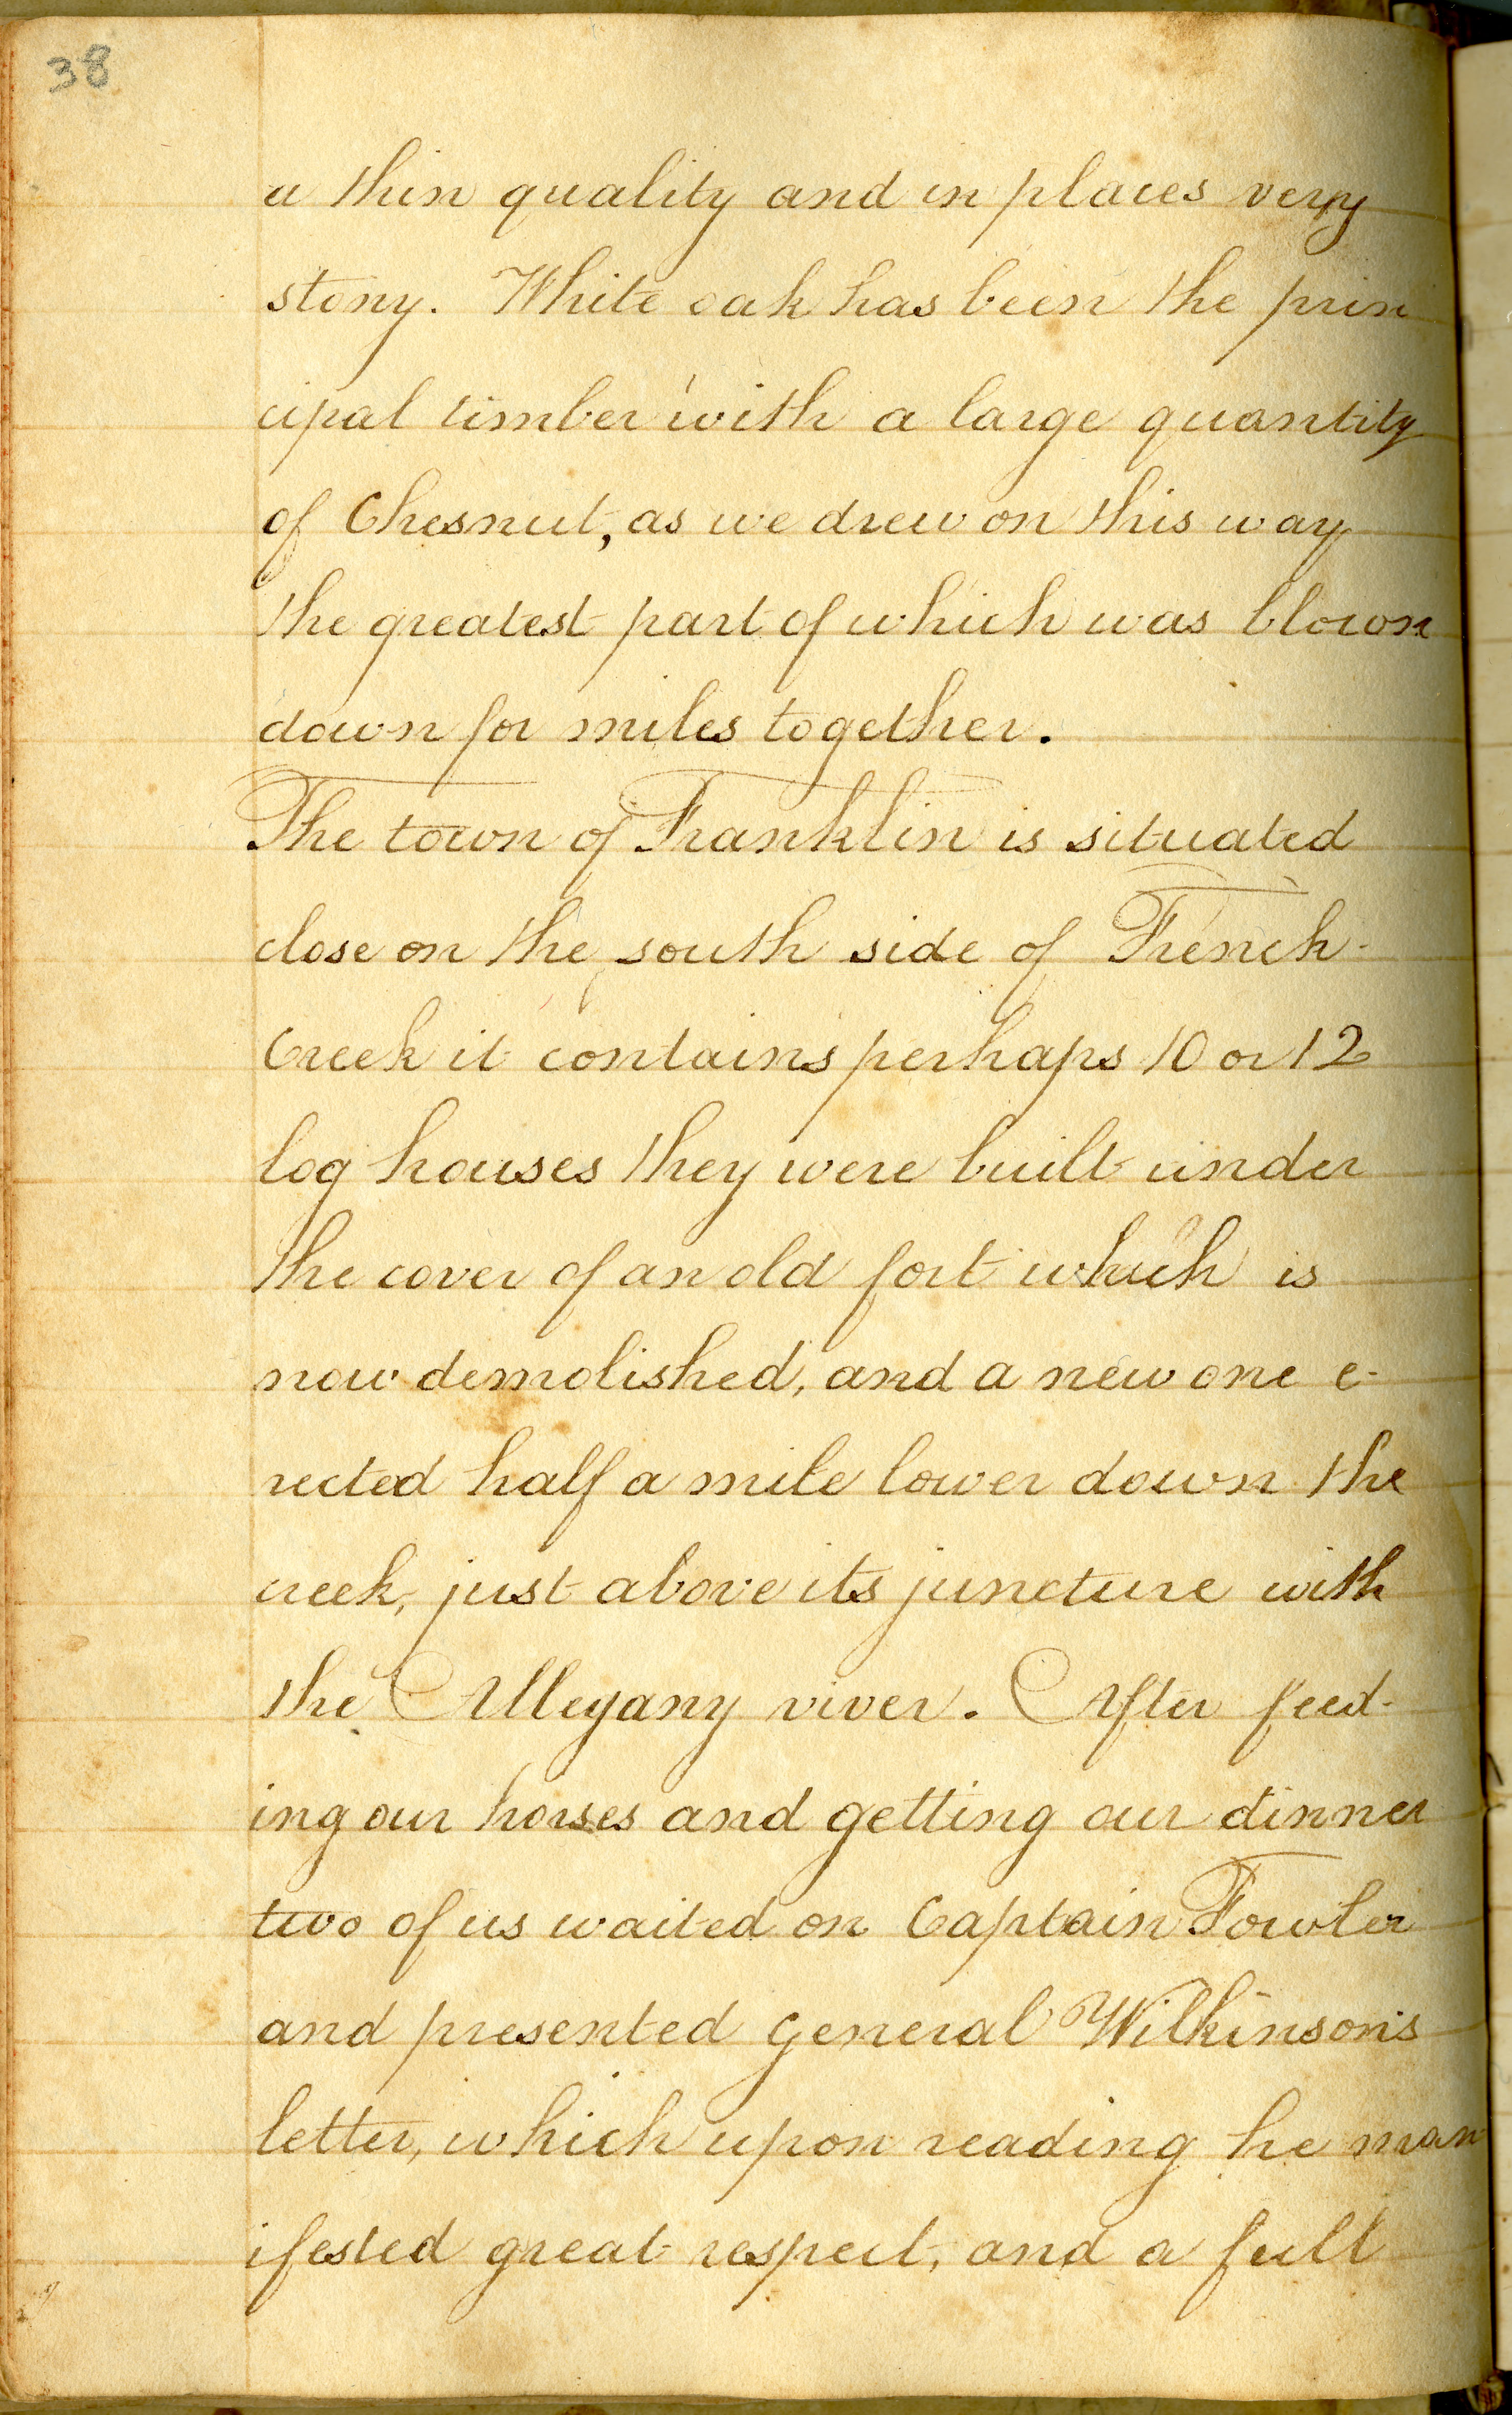 38
a thin quality and in places very
stony. White oak has been the prin
cipal timber with a large quantity
of Chesnut, as we drew on this way
the greatest part of which was blown
down for miles together.
The town of Franklin is situated
close on the south side of French-
Creek it contains perhaps 10 or 12
log houses they were built under
the cover of an old fort which is
now demolished, and a new one e-
rected half a mile lower down the
creek, just above its juncture with
the Allegany river. After feed-
ing our horses and getting our dinner
two of us waited on Captain Fowler
and presented general Wilkinson's
letter, which upon reading he man
ifested great respect, and a full